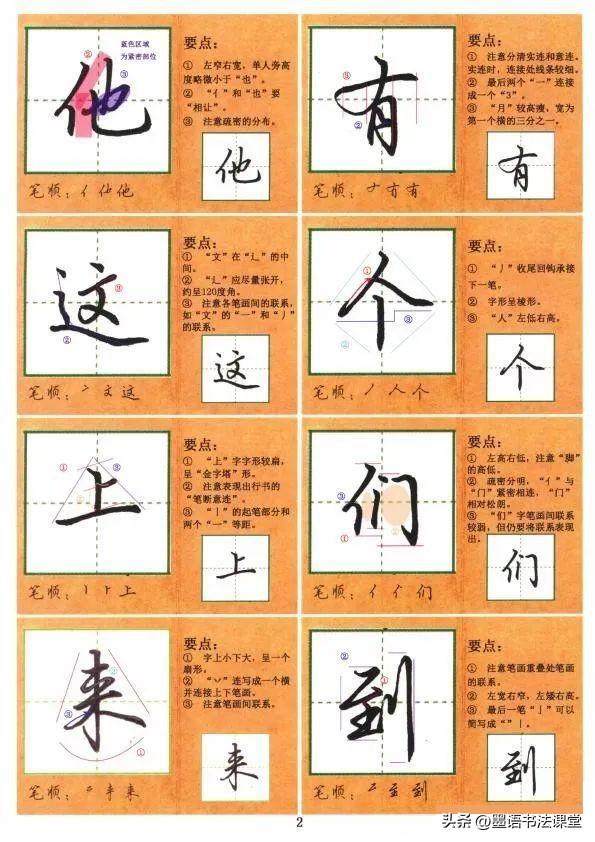 蓝色区域
为紧密部位
②
③
他
要点：
① 左窄右宽，单人旁高
度略微小于“也”。
② “亻”和“也”要
“相让”。
③ 注意疏密的分布。
他
笔顺：亻 仂 他
③
②
有
要点：
① 注意分清实连和意连。
实连时，连接处线条较细。
② 最后两个“一”连接
成一个“3”。
③ “月”较高瘦，宽为
第一个横的三分之一。
有
笔顺：𠂇 冇 有
③
②
这
要点：
① “文”在“辶”的中
间。
② “辶”应尽量张开，
约呈120度角。
③ 注意各笔画间的联系，
如“文”的“一”和“丿”
的联系。
这
笔顺：亠 文 这
①
③
②
个
要点：
① “丿”收尾回钩承接
下一笔。
② 字形呈棱形。
③ “人”左低右高。
个
笔顺：丿 人 个
①
③
②
上
要点：
① “上”字字形较扁，
呈“金字塔”形。
② 注意表现出行书的
“笔断意连”。
③ “丨”的起笔部分和
两个“一”等距。
上
笔顺：丨 ⺊ 上
③
②
①
们
要点：
① 左高右低，注意“脚”
的高低。
② 疏密分明，“亻”与
“门”紧密相连，“门”
相对松朗。
③ “们”字笔画间联系
较弱，但仍要将联系表现
出。
们
笔顺：亻 们
②
③
①
来
要点：
① 字上小下大，呈一个
扇形。
② “丷”连写成一个横
并连接上下笔画。
③ 注意笔画间联系。
来
笔顺：来
②
①
③
到
要点：
① 注意笔画重叠处笔画
的联系。
② 左宽右窄，左矮右高。
③ 最后一笔“亅”可以
简写成“”丨。
到
笔顺：至 到
2
头条 @墨语书法课堂